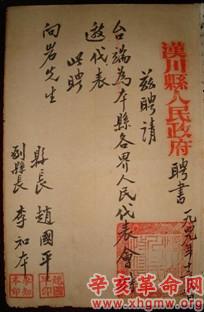 漢川縣人民政府 聘書
茲聘請
台端為本縣各界人民代表會
邀代表
此聘
向岩先生
縣長 趙國平
副縣長 李知本
辛亥革命网
www.xhgmw.org